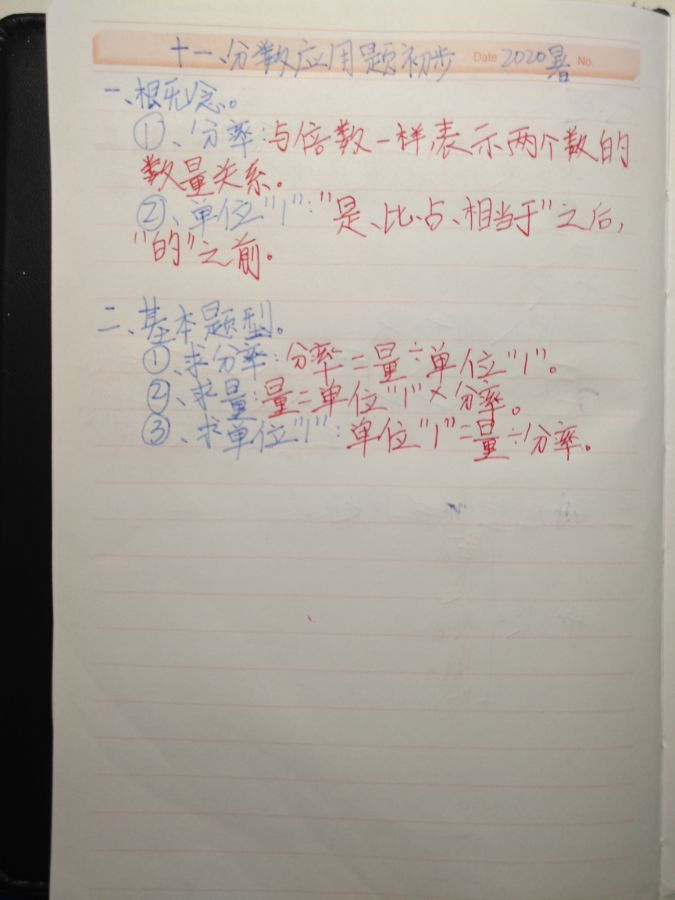 十一、分数应用题初步 Date 2020暑 No.
一、概念。
①、分率:与倍数一样,表示两个数的
数量关系。
②、单位"1":"是、比、占、相当于"之后,
"的"之前。
二、基本题型。
①、求分率:分率=量÷单位"1"。
②、求量:量=单位"1"×分率。
③、求单位"1":单位"1"=量÷分率。